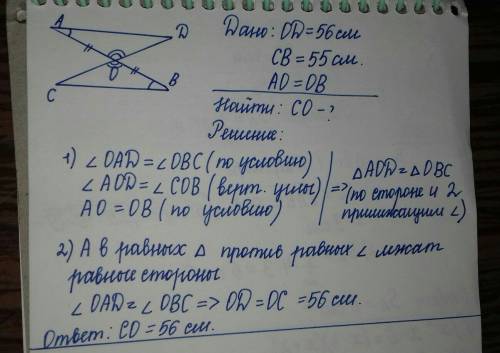 A
D
O
C
B
Дано: OD = 56 см
CB = 55 см.
AO = OB
Найти: CO - ?
Решение:
1) ∠OAD = ∠OBC (по условию)
∠AOD = ∠COB (верт. углы)
AO = OB (по условию)
=> △AOD = △OBC
(по стороне и 2
прилижащим ∠)
2) А в равных △ против равных ∠ лежат
равные стороны
∠OAD = ∠OBC => OD = OC = 56 см.
Ответ: CO = 56 см.